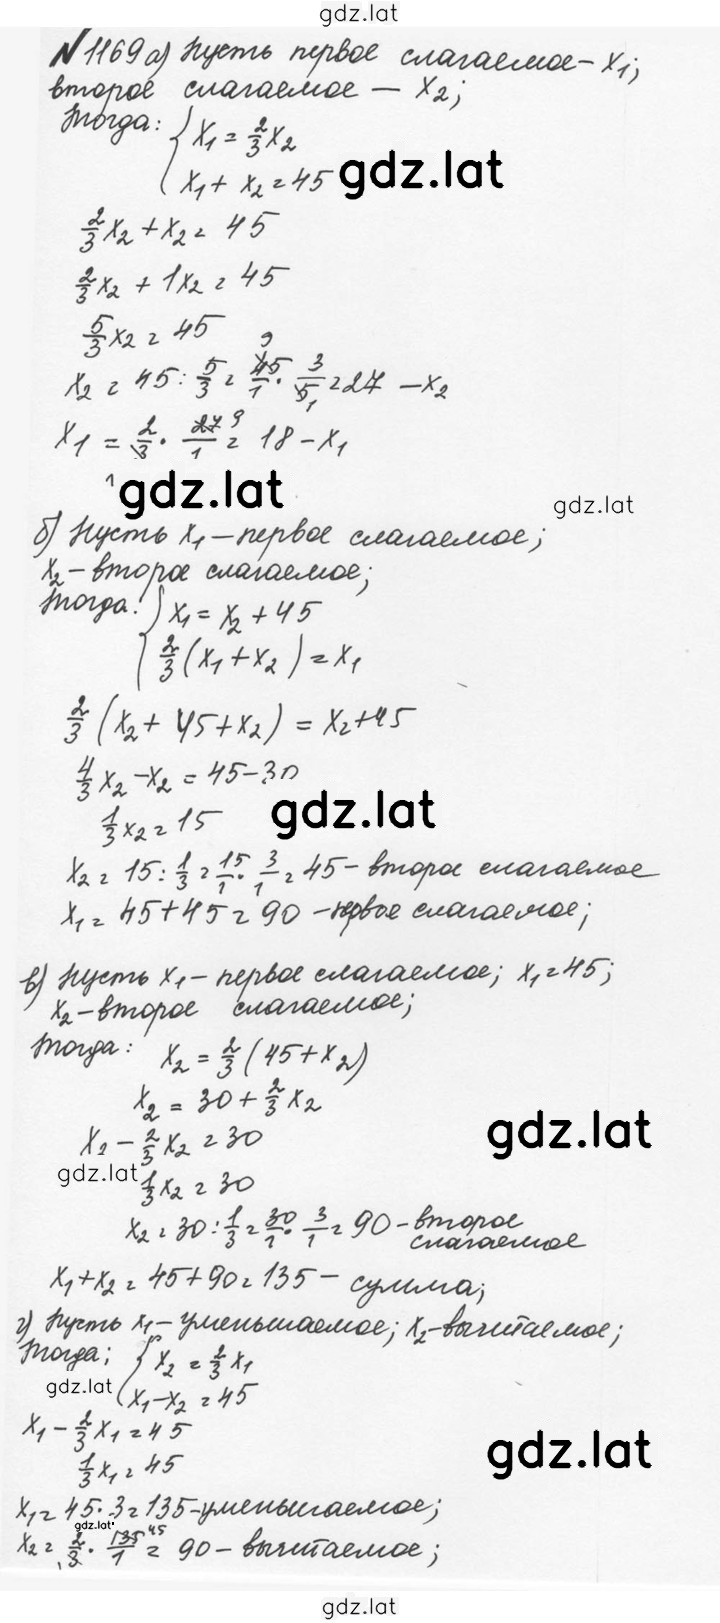 gdz.lat
N 1169 а) Пусть первое слагаемое – x₁;
второе слагаемое — x₂;
Тогда: { x₁ = 2/3 x₂
x₁ + x₂ = 45
gdz.lat
2/3 x₂ + x₂ = 45
2/3 x₂ + 1x₂ = 45
5/3 x₂ = 45
x₂ = 45 : 5/3 = 45/1 · 3/5 = 27 – x₂
x₁ = 2/3 · 27/1 = 18 – x₁
gdz.lat
gdz.lat
б) Пусть x₁ – первое слагаемое;
x₂ – второе слагаемое;
Тогда: { x₁ = x₂ + 45
2/3 (x₁ + x₂) = x₁
2/3 (x₂ + 45 + x₂) = x₂ + 45
4/3 x₂ – x₂ = 45 – 30
gdz.lat
1/3 x₂ = 15
x₂ = 15 : 1/3 = 15/1 · 3/1 = 45 – второе слагаемое
x₁ = 45 + 45 = 90 – первое слагаемое;
в) Пусть x₁ – первое слагаемое; x₁ = 45;
x₂ – второе слагаемое;
Тогда: x₂ = 2/3 (45 + x₂)
x₂ = 30 + 2/3 x₂
gdz.lat
x₂ – 2/3 x₂ = 30
gdz.lat
1/3 x₂ = 30
x₂ = 30 : 1/3 = 30/1 · 3/1 = 90 – второе
слагаемое
x₁ + x₂ = 45 + 90 = 135 – сумма;
г) Пусть x₁ – уменьшаемое; x₂ – вычитаемое;
Тогда; { x₂ = 2/3 x₁
gdz.lat
x₁ – x₂ = 45
x₁ – 2/3 x₁ = 45
gdz.lat
1/3 x₁ = 45
x₁ = 45 · 3 = 135 – уменьшаемое;
gdz.lat
x₂ = 2/3 · 135/1 = 90 – вычитаемое;
gdz.lat